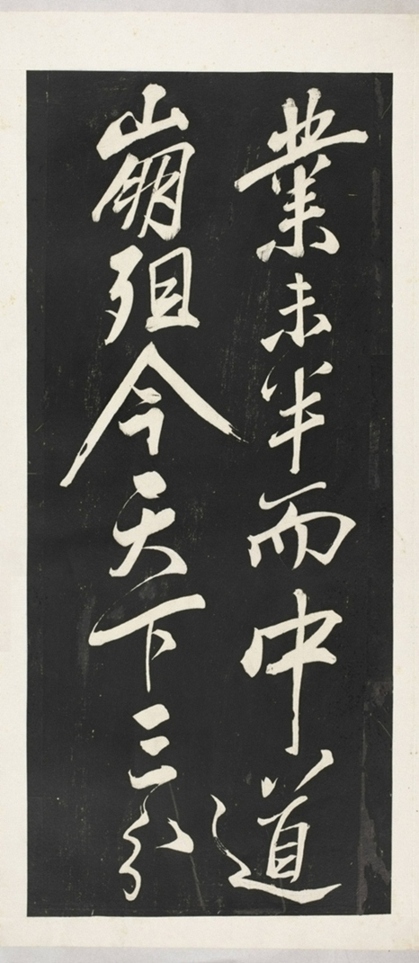 業未半而中道
崩殂今天下三分